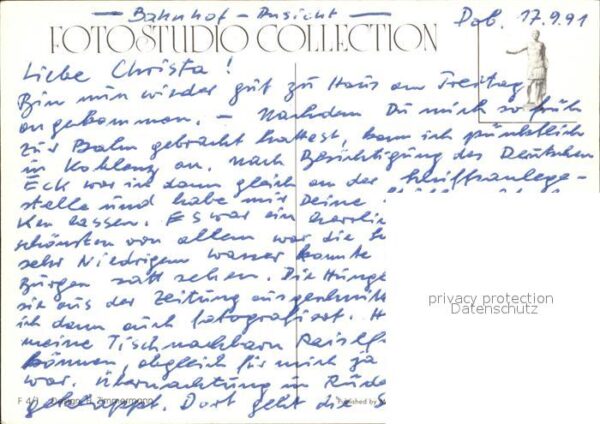 — Bahnhof – Ansicht —
Dob. 17.9.91
FOTOSTUDIO COLLECTION
Liebe Christa!
Bin nun wieder gut zu Haus am Freitag
angekommen. – Nachdem Du mich so früh
zur Bahn gebracht hattest, kam ich pünktlich
in Koblenz an. Nach Besichtigung des Deutschen
Eck war ich dann gleich an der Schiffsanlege-
stelle und habe mir Deine
ken lassen. Es war ein herrlic
schönsten von allem war die
sehr Niedrigem wasser konnte
Burgen satt sehen. Die Hünge
sie aus der Zeitung ausgeschnitt
ich dann auch fotografiert. H
meine Tischnachbarn
können, obgleich für mich ja
war. Übernachtung in Rüde
geklappt. Dort geht die S
privacy protection
Datenschutz
F 4
Design: H. Zimmermann
Published by